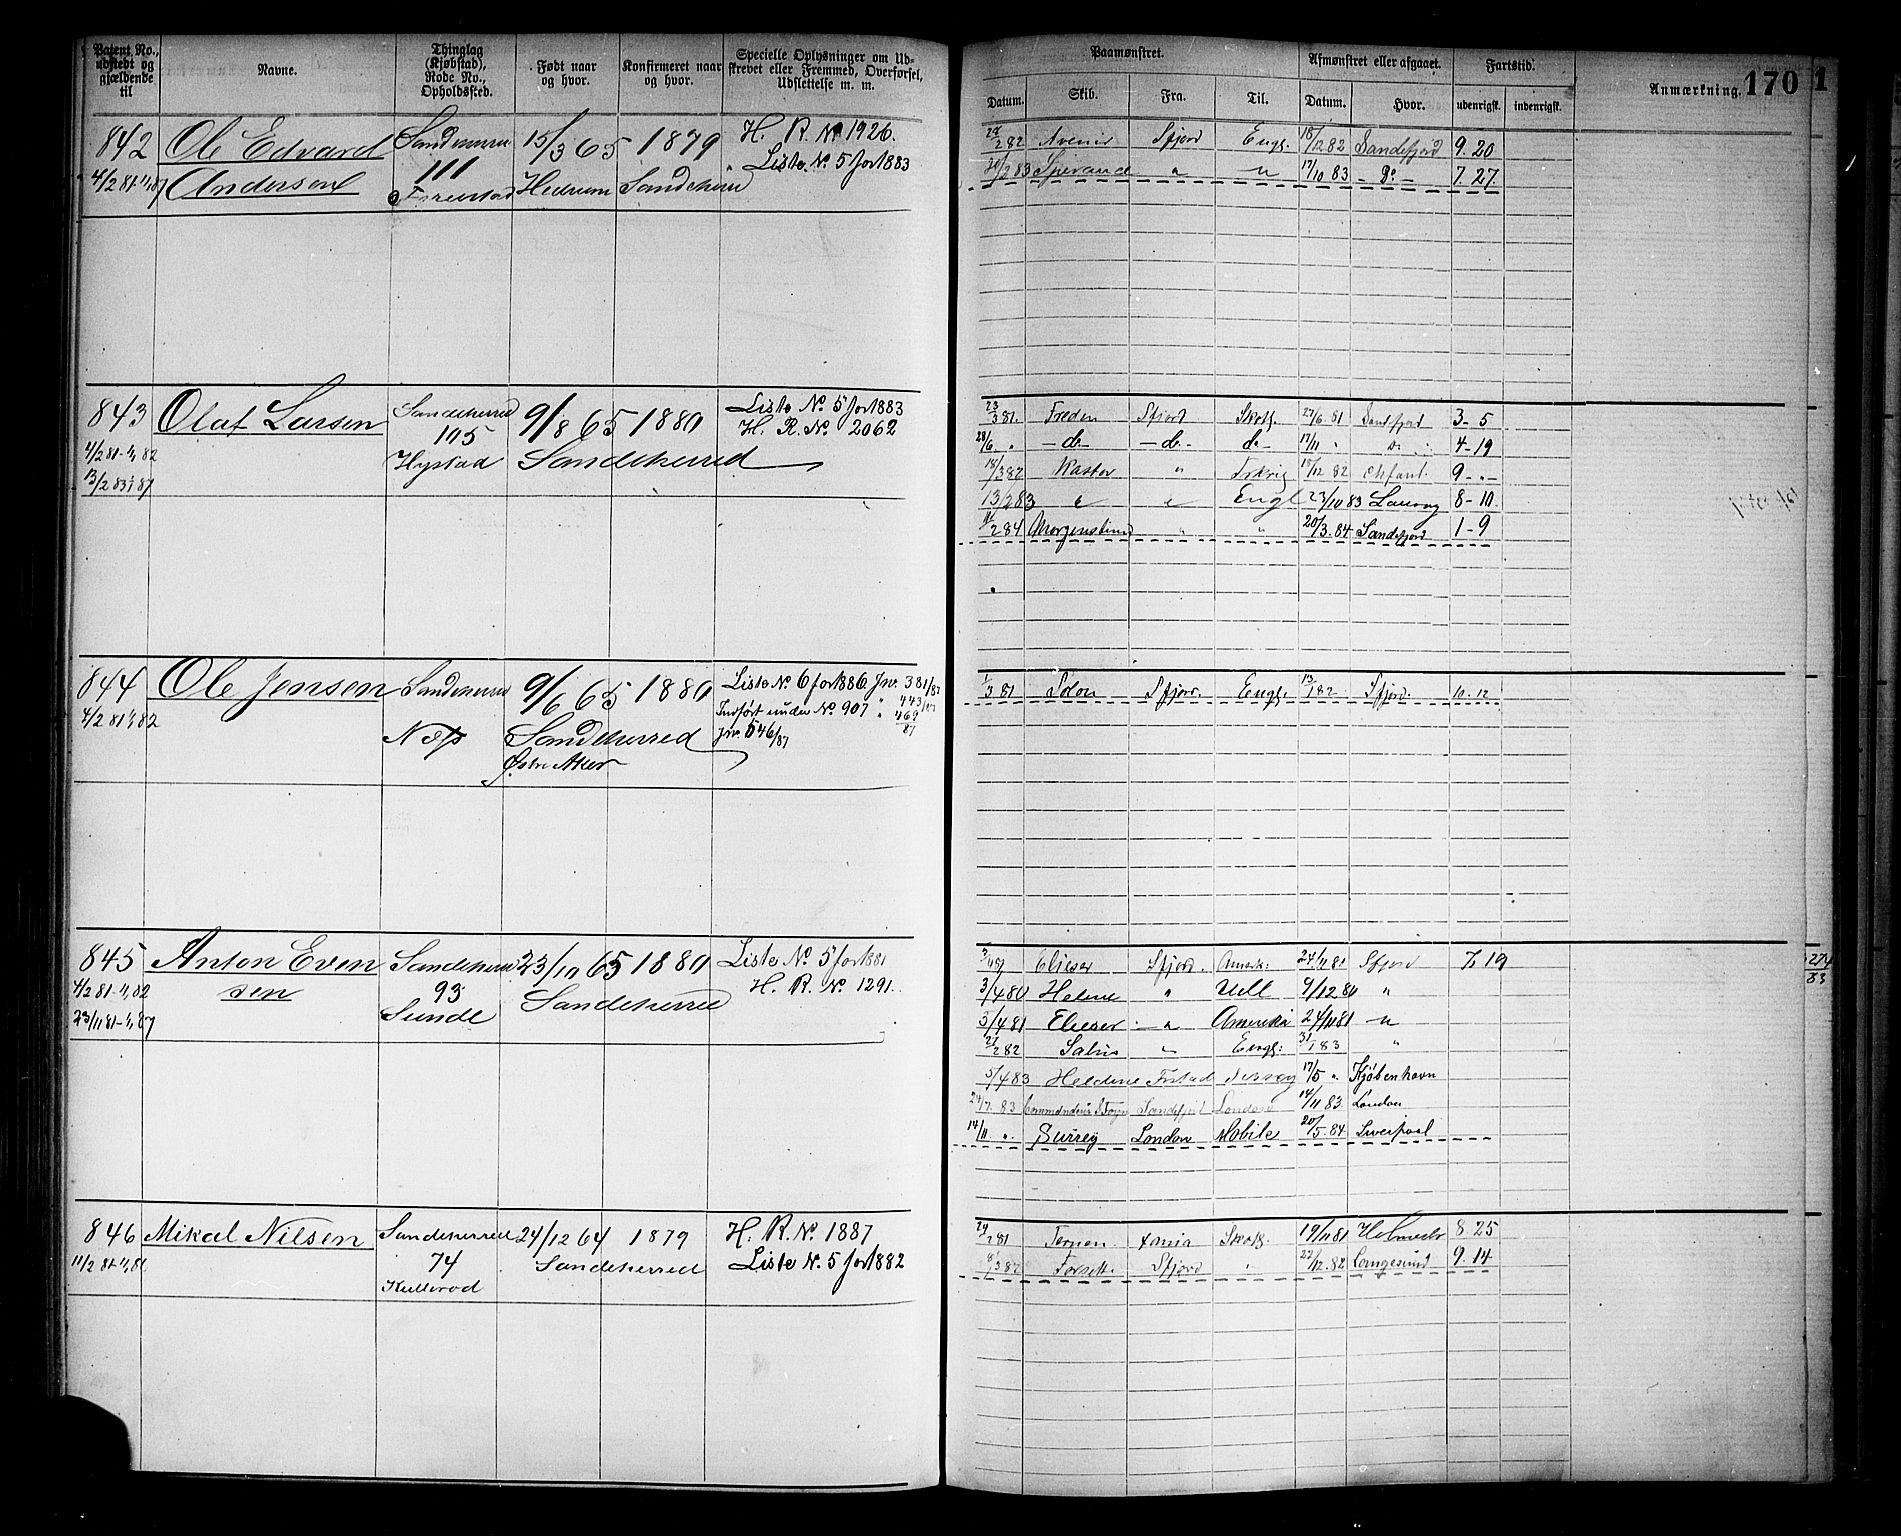 Patent No., udstedt og gjældende til
Navne.
Thinglag (Kjøbstad), Rode No., Opholdssted.
Født naar og hvor.
Konfirmeret naar og hvor.
Specielle Oplysninger om Udskrevet eller Fremmed, Overførsel, Udslettelse m. m.
Paamønstret.
Afmønstret eller afgaaet.
Fartstid.
Anmærkning.
170
1
Datum. Skib. Fra. Til. Datum. Hvor. udenrigsk. indenrigsk.
842 Ole Edvard Sandeherred 15/3 65 1879 H. R. No 1926.
4/2 81-1/1 87 Andersen 111 Hedrum Sandeherred Liste No. 5 for 1883
28/2 82 Avenir Sfjord Engl. 18/12 82 Sandefjord 9. 20
20/2 83 " " 17/10 83 - Do - 7. 27
843 Olaf Larsen Sandeherred 9/8 65 1880 Liste No. 5 for 1883
105 H. R. No. 2062
4/2 81-1/1 82 Hystad Sandeherred
13/2 83 1/1 87
23/3 81. Freden Sfjord Skotl. 27/6 81 Sandfjord 3-5
28/6 " -do- -do- do- 17/11 " Do 4-19
18/3 82 Kastor " 18/12 82 9-"-
13/2 83 " " Engl 23/10 83 Laurvig 8-10
11/2 84 Morgenstund " " 20/3. 84 Sandefjord 1-9
844 Ole Jensen Sandeherred 9/6 65 1880 Liste No. 6 for 1886. Jnr. 381/87
4/2 81 1/1 82 " 443/87
Indført under No. 907 " 469/87
Næs Sandeherred Jnr. 546/87
Østre Aker
1/3 81 Solon Sfjord. Engl. 13/1 82 Sfjord. 10. 12
845 Anton Even Sandeherred 23/10 65 1880 Liste No. 5 for 1881
4/2 81-1/1 82 sen 93 Sandeherred H. R. No 1291.
23/11 81-1/1 87 Sunde
Elieser Sfjord. Amerk: 24/11 81 Sfjord 7, 19
3/4 80 Helene " 9/12 80 "
3/4 81 Elieser " Amerika 24/11 81 "
21/2 82 " Engl: 31/1 83 "
5/4 83 17/5 " Kjøbenhavn
24/7. 83 Sandefjord London 14/11 83 London
14/11 ". Surrey London Mobile 20/5. 84 Liverpool
274/83
846 Mikal Nilsen Sandeherred 24/12 64 1879 H. R. No. 1887
11/2 81-1/1 86 74 Sandeherred Liste No. 5 for 1882
Kullerød
24/2 81 Ternen Skotl. 19/11 81 8 25
8/3 82 Sfjord 22/12. 82 Langesund 9. 14